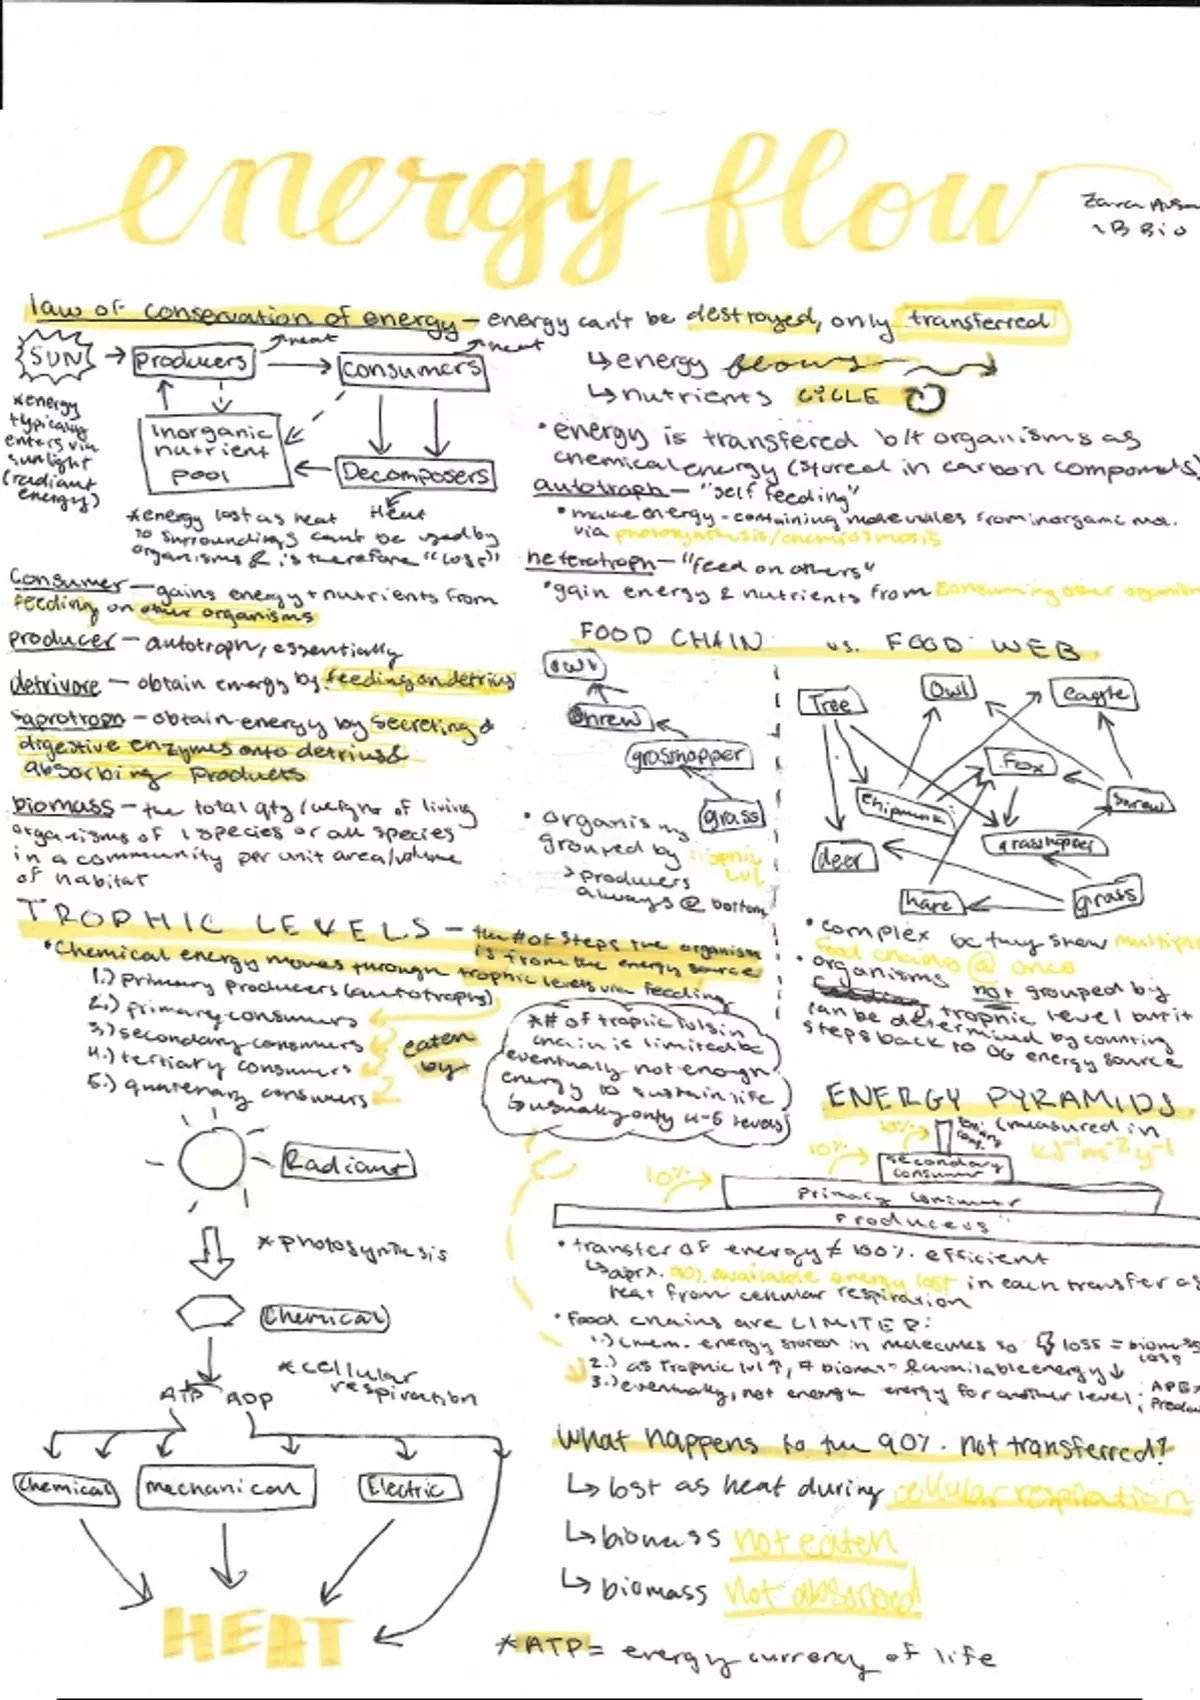 energy flow
Zara
IB Bio
law of conservation of energy - energy can't be destroyed, only transferred
SUN
producers
heat
consumers
heat
Inorganic
nutrient
pool
Decomposers
Heat
*energy
typically
enters via
sunlight
(radiant
energy)
*energy lost as heat
to surroundings can't be used by
organisms & is therefore "lost"
↳energy flows
↳nutrients CYCLE
•energy is transfered b/t organisms as
chemical energy (stored in carbon compounds)
autotroph - "self feeding"
•make energy-containing molecules from inorganic mol.
via photosynthesis/chemiosmosis
heterotroph - "feed on others"
•gain energy & nutrients from consuming other
consumer - gains energy + nutrients from
feeding on other organisms
producer - autotroph, essentially
detrivore - obtain energy by feeding on detrius
saprotroph - obtain energy by secreting
digestive enzymes onto detrius &
absorbing products
biomass - the total qty/weight of living
organisms of 1 species or all species
in a community per unit area/volume
of habitat
FOOD CHAIN vs. FOOD WEB
owl
shrew
grasshopper
grass
•organisms
grouped by trophic
lvl
>producers
always @ bottom
Tree
Owl
eagle
Fox
chipmunk
shrew
grasshopper
deer
hare
grass
•complex bc they show multiple
food chains @ once
•organisms not grouped by
trophic level but it
can be determined by counting
steps back to OG energy source
TROPHIC LEVELS - the # of steps the organism
is from the energy source
•Chemical energy moves through trophic levels via feeding
1.) primary producers (autotrophs)
2.) primary consumers
3.) secondary consumers
4.) tertiary consumers
5.) quatenary consumers
eaten
by
*# of trophic lvls in
chain is limited bc
eventually not enough
energy to sustain life
↳usually only 4-5 levels
ENERGY PYRAMIDS
(measured in
kJ⁻¹m⁻²y⁻¹
10%
10%
10%
secondary
consumer
primary consumer
Producers
•transfer of energy ≠ 100% efficient
↳aprx. 90% available energy lost in each transfer as
heat from cellular respiration
•Food chains are LIMITED:
1.) chem. energy stored in molecules so loss = biomass
loss
2.) as trophic lvl ↑, biomass & available energy ↓
3.) eventually, not enough energy for another level;
Radiant
*photosynthesis
Chemical
*cellular
respiration
ATP ADP
Chemical
mechanical
Electric
HEAT
What happens to the 90% not transferred?
↳lost as heat during cellular respiration
↳biomass not eaten
↳biomass not absorbed
*ATP = energy currency of life